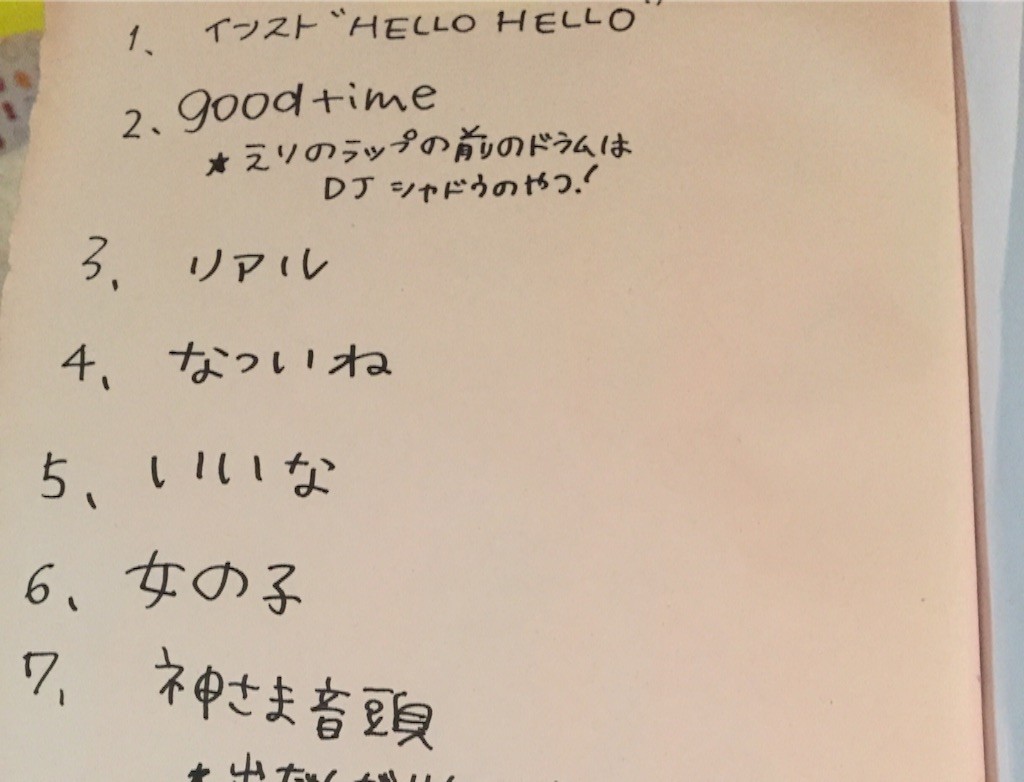 1、 インスト“HELLO HELLO”
2、 good time
★ えりのラップの前のドラムは
DJ シャドウのやつ!
3、 リアル
4、 なついね
5、 いいな
6、 女の子
7、 神さま音頭
★